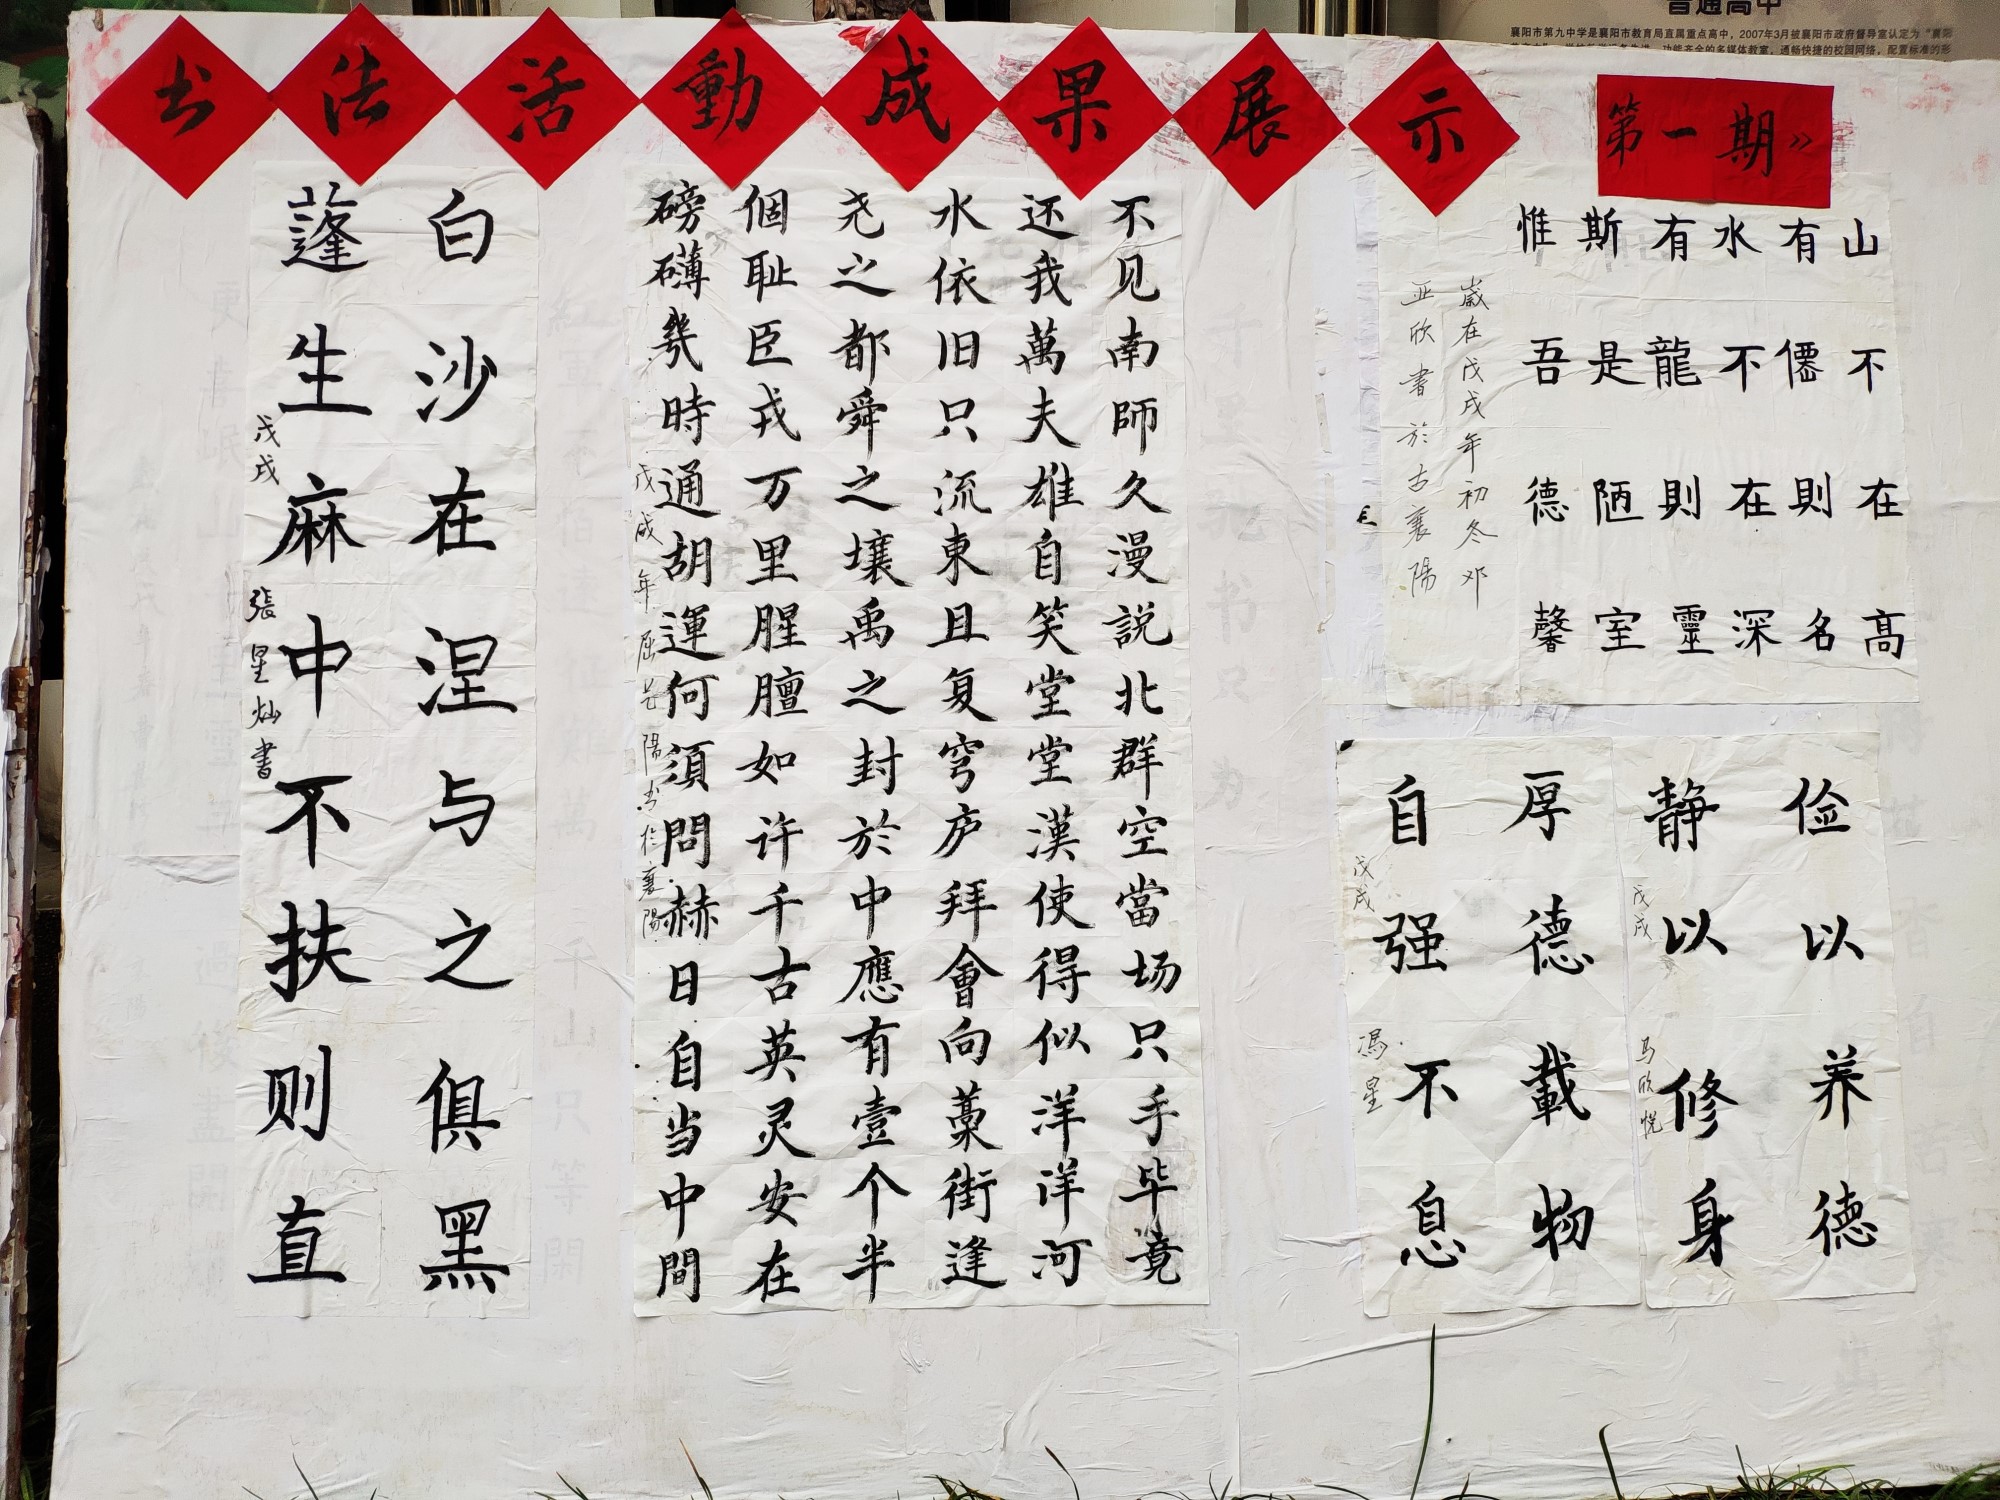 普通高中
襄阳市第九中学是襄阳市教育局直属重点高中，2007年3月被襄阳市政府督导室认定为“襄阳
功能齐全的多媒体教室，通畅快捷的校园网络，配置标准的形
书法活動成果展示
第一期》
山不在高
有僊則名
水不在深
有龍則靈
斯是陋室
惟吾德馨
歲在戊戌年初冬邓
亚欣書於古襄陽
俭以养德
静以修身
戊戌
马欣悦
厚德載物
自强不息
戊戌
馮星
不见南師久漫説北群空當场只手毕竟
还我萬夫雄自笑堂堂漢使得似洋洋河
水依旧只流東且复穹庐拜會向藁街逢
尧之都舜之壤禹之封於中應有壹个半
個耻臣戎万里腥膻如许千古英灵安在
磅礴幾時通胡運何須問赫日自当中間
白沙在涅与之俱黑
蓬生麻中不扶则直
戊戌
張星灿書